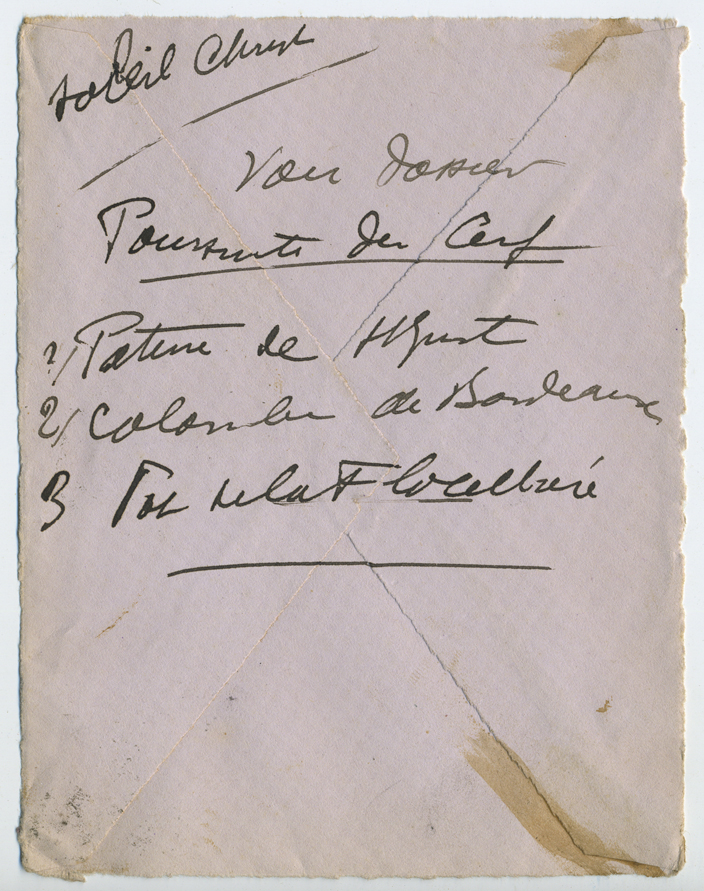 Soleil Christ
Voir dossier
Poursuite du Cerf
1/ Patène de
2/ Colombe de Bordeaux
3 Pot de la Flocellière